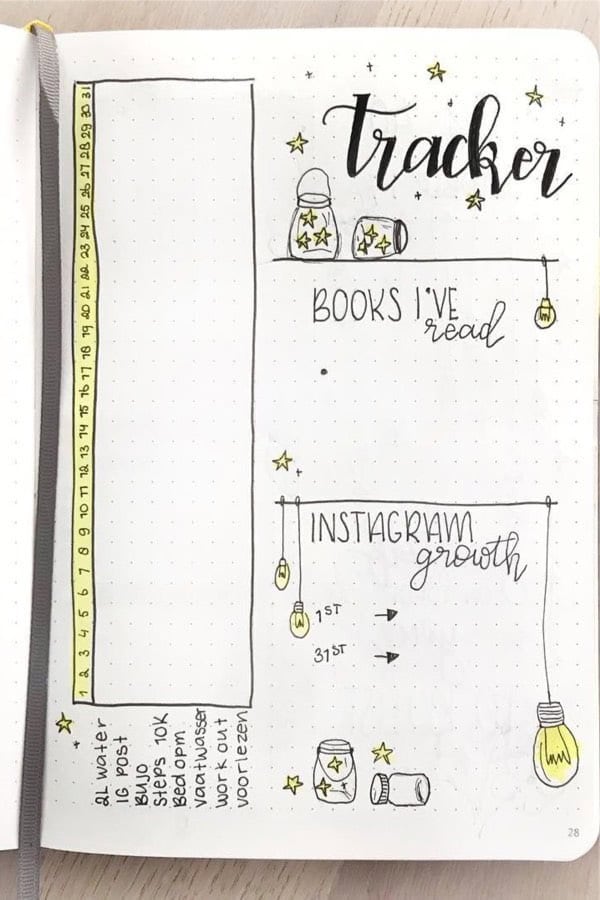 tracker
BOOKS I'VE
read
INSTAGRAM
growth
1ST
31ST
1 2 3 4 5 6 7 8 9 10 11 12 13 14 15 16 17 18 19 20 21 22 23 24 25 26 27 28 29 30 31
2L water
IG post
BUJO
Steps 10K
Bed opm
Vaatwasser
work out
voorlezen
28